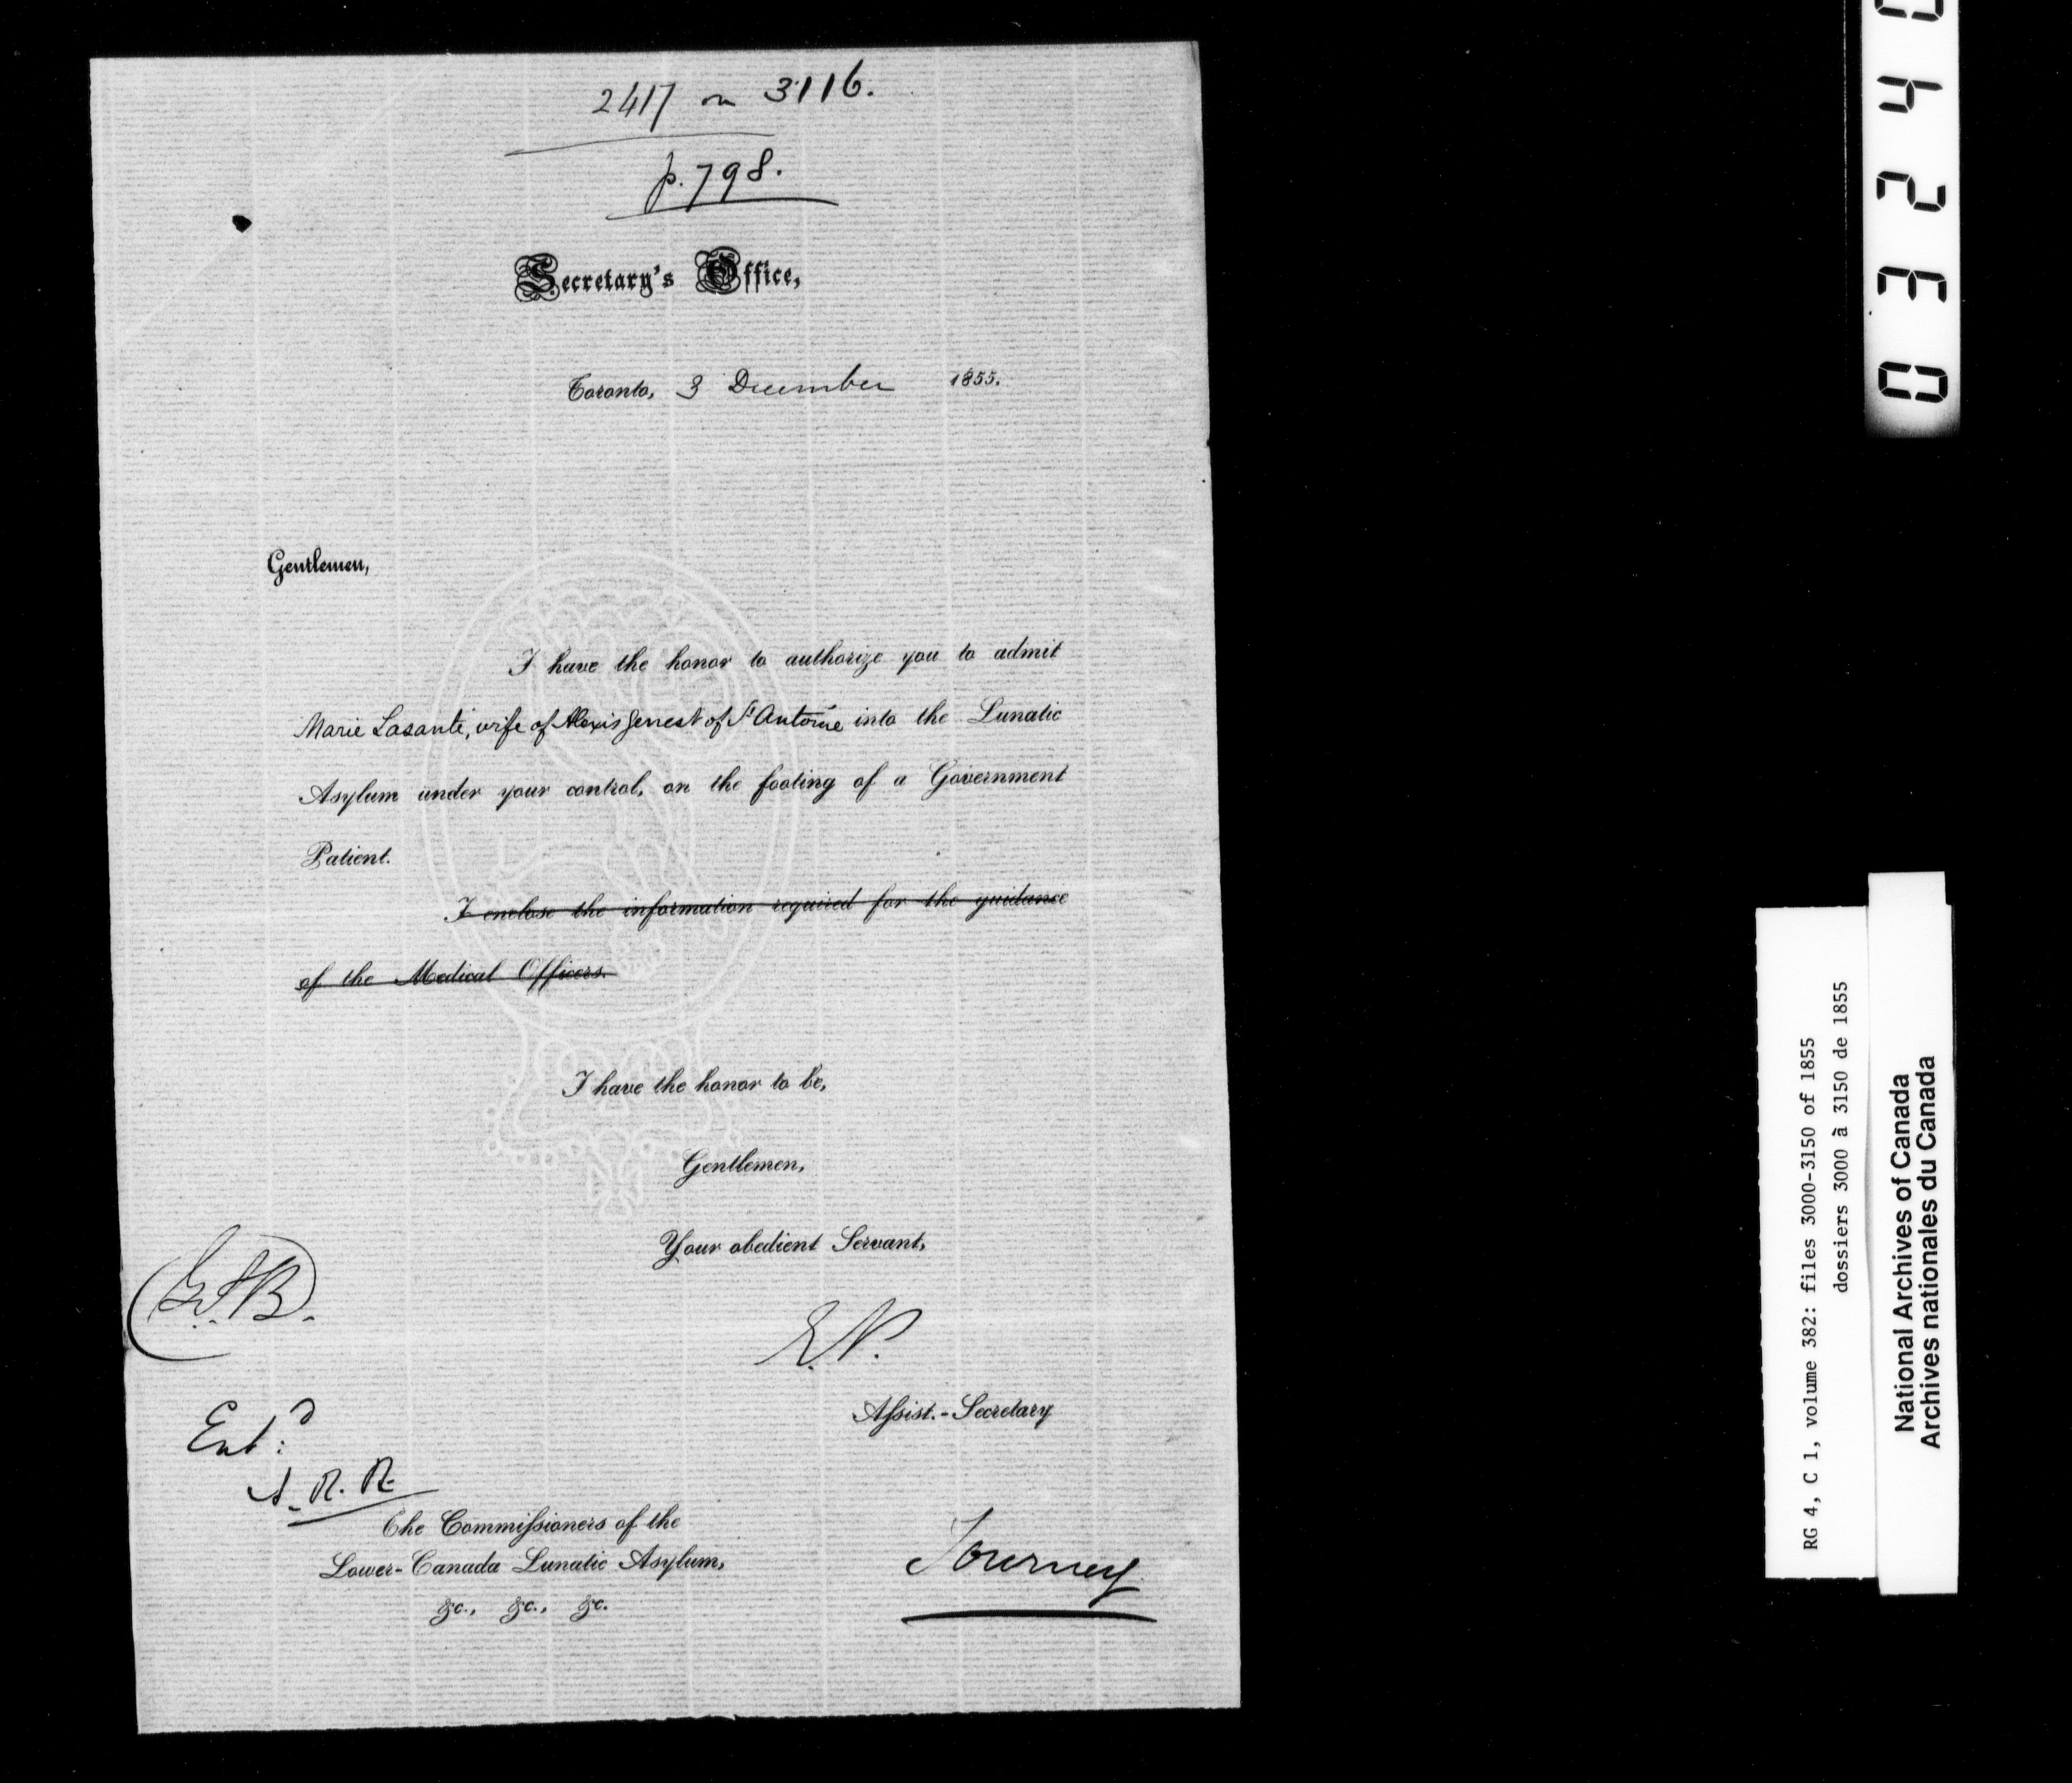 2417 on 3116.
p. 798.
Secretary's Office,
Toronto, 3 December 1855.
Gentlemen,
I have the honor to authorize you to admit
Marie Lasante, wife of Alexis Genest of St Antoine into the Lunatic
Asylum under your control, on the footing of a Government
Patient.
I enclose the information required for the guidance
of the Medical Officers.
I have the honor to be,
Gentlemen,
Your obedient Servant,
E.P.
Assist.-Secretary
Ent:d
A. R. R.
The Commissioners of the
Lower-Canada Lunatic Asylum,
&c., &c., &c.
RG 4, C 1, volume 382: files 3000-3150 of 1855
dossiers 3000 à 3150 de 1855
National Archives of Canada
Archives nationales du Canada
0324